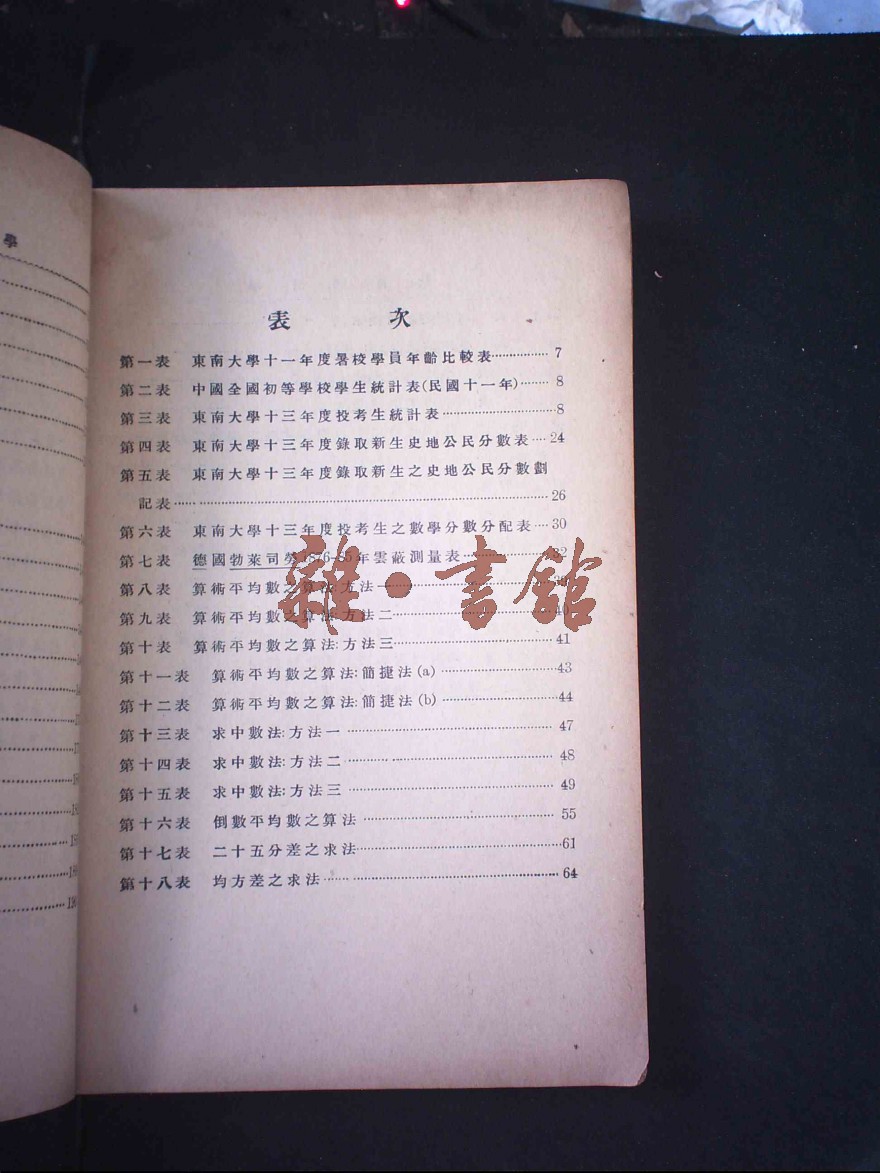 學
表 次
第一表 東南大學十一年度暑校學員年齡比較表 7
第二表 中國全國初等學校學生統計表(民國十一年) 8
第三表 東南大學十三年度投考生統計表 8
第四表 東南大學十三年度錄取新生史地公民分數表 24
第五表 東南大學十三年度錄取新生之史地公民分數劃
記表 26
第六表 東南大學十三年度投考生之數學分數分配表 30
第七表 德國勃萊司勞1876-85年雲蔽測量表 32
第八表 算術平均數之算法:方法一
第九表 算術平均數之算法:方法二 40
第十表 算術平均數之算法:方法三 41
第十一表 算術平均數之算法:簡捷法(a) 43
第十二表 算術平均數之算法:簡捷法(b) 44
第十三表 求中數法:方法一 47
第十四表 求中數法:方法二 48
第十五表 求中數法:方法三 49
第十六表 倒數平均數之算法 55
第十七表 二十五分差之求法 61
第十八表 均方差之求法 64
雜·書館